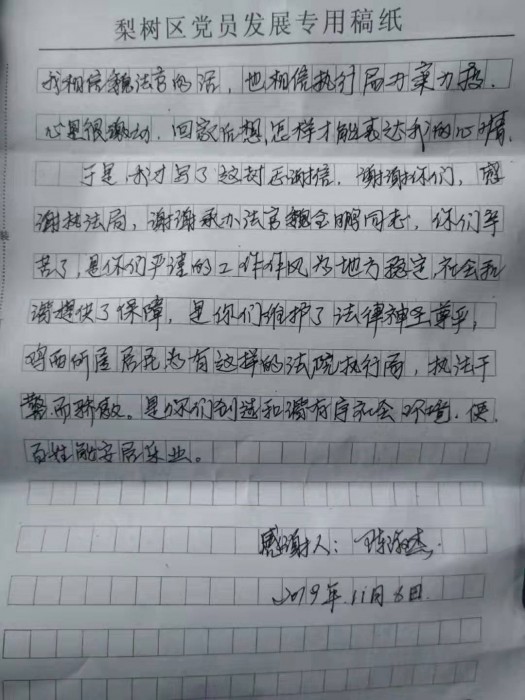 梨树区党员发展专用稿纸
我相信魏法官的话，也相信执行局办案力度，
心里很激动，回家后想，怎样才能表达我的心情，
于是我才写了这封感谢信，谢谢你们，感
谢执法局，谢谢承办法官魏全鹏同志，你们辛
苦了，是你们严谨的工作作风为地方稳定，社会和
谐提供了保障，是你们维护了法律神圣尊严，
鸡西所属居民为有这样的法院执行局，执法干
警而骄傲。是你们创造和谐有序社会环境，使
百姓能安居乐业。
感谢人：
2019年11月6日